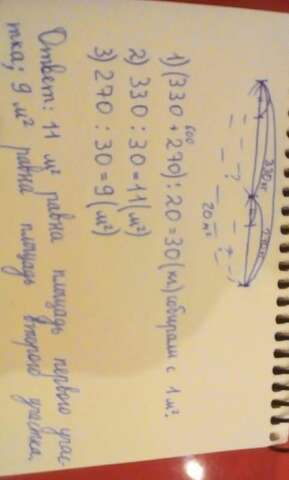 330 кг
270 кг
? ?
20 м²
600
1) (330 + 270) : 20 = 30 (кг) собирали с 1 м².
2) 330 : 30 = 11 (м²)
3) 270 : 30 = 9 (м²)
Ответ: 11 м² равна площадь первого учас-
тка; 9 м² равна площадь второго участка.